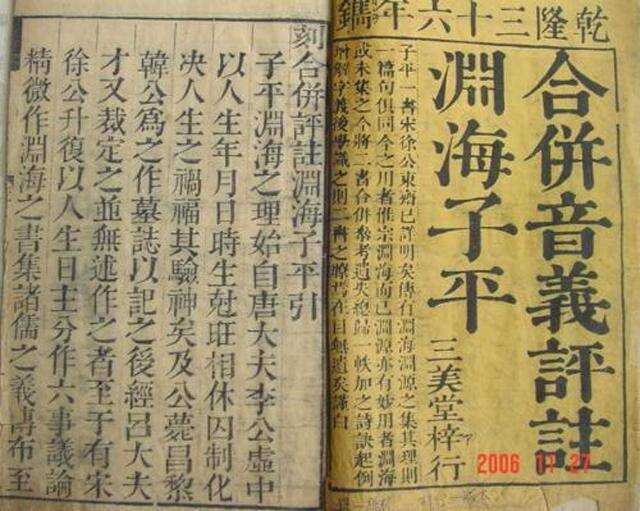 乾隆三十六年鐫
合併音義評註
淵海子平
三美堂梓行
子平一書宋徐公東齋已詳明矣傳行淵海淵源之集其理則
一篇句俱同今之用者惟宗淵海而已淵源亦有妙用者淵海
或未集之今將二書合併參考遺失總歸一帙加之詩訣起例
增解字義後學識之則二書之瞭焉在目無遺矣謹白
2006 11 27
刻合併評註淵海子平引
子平淵海之理始自唐大夫李公虛中
以人生年月日時生尅旺相休囚制化
决人生之禍福其驗神矣及公薨昌黎
韓公為之作墓誌以記之後經呂大夫
才又裁定之並無述作之者至于有宋
徐公升復以人生日主分作六事議論
精微作淵海之書集諸儒之義傳布至